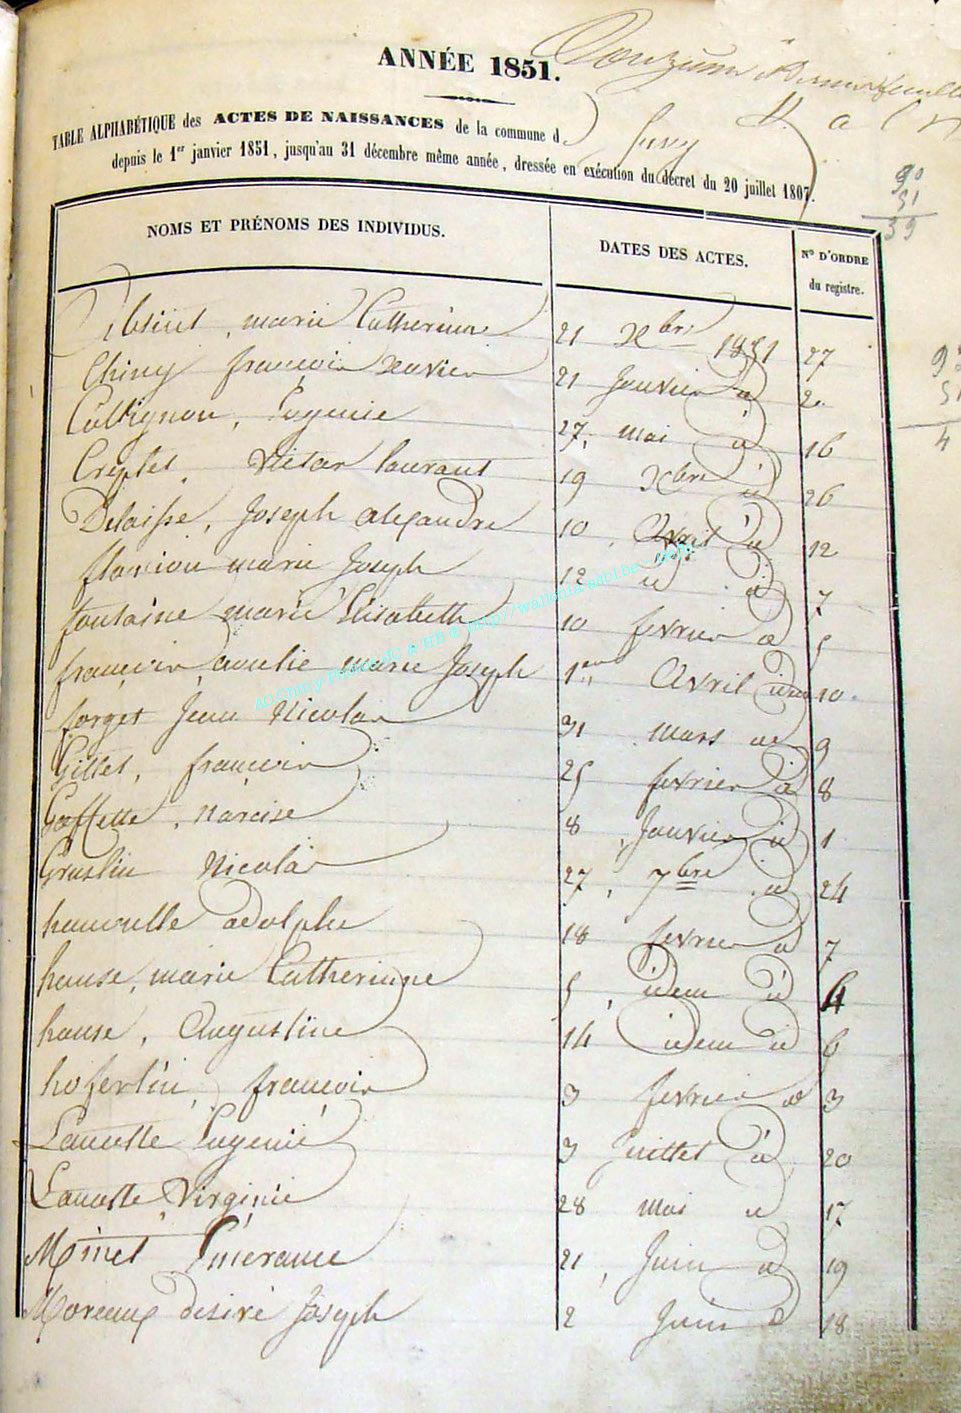 ANNÉE 1851.
TABLE ALPHABÉTIQUE des ACTES DE NAISSANCES de la commune d
depuis le 1er janvier 1851, jusqu'au 31 décembre même année, dressée en exécution du décret du 20 juillet 1807.
90
51
39
NOMS ET PRÉNOMS DES INDIVIDUS. DATES DES ACTES. N° D'ORDRE du registre.
marie Catherine 21 Xbre 1851 27
Chiny françois Xavier 21 Janvier id 2
Collignon, Eugenie 27, mai id 16
Creplet, Victor laurant 19 Xbre id 26
Delaisse, Joseph alexandre 10, Avril id 12
florion marie Joseph 12 id id 7
fontaine marie Elisabeth 10 fevrier id 5
françois, amelie marie Joseph 1er Avril idem 10
forget Jean Nicolas 31 mars id 9
Gillet, françois 25 fevrier id 8
Goffette, narcise 8, Janvier id 1
Gruslin Nicolas 27, 7bre id 24
adolphe 18 fevrier id 7
hause, marie Catherinne 5, idem id 4
hause, Augustine 14 idem id 6
hoferlin, françois 3 fevrier id 3
Eugenié 3 Juillet id 20
Virginie 28 mai id 17
Minet Emerance 21, Juin id 19
Moreaux desiré Joseph 2 Juin id 18